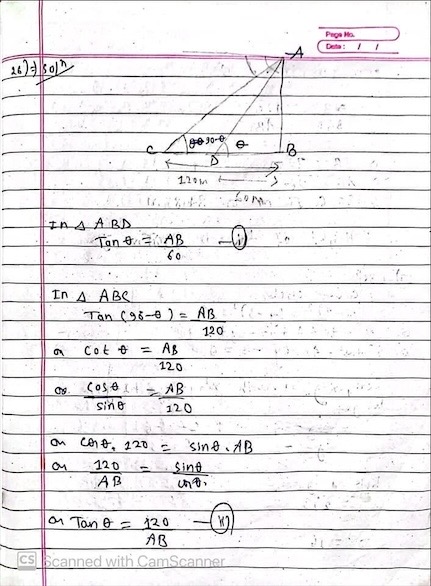 Page No.
Date: / /
26) ⇒ Soln
A
C 90-θ θ B
D
120m
60m
In Δ ABD
Tan θ = AB/60 — (i)
In Δ ABC
Tan (90-θ) = AB/120
or Cot θ = AB/120
or Cosθ/sinθ = AB/120
or Cosθ. 120 = sinθ. AB
or 120/AB = sinθ/cosθ.
or Tan θ = 120/AB — (ii)
CS Scanned with CamScanner